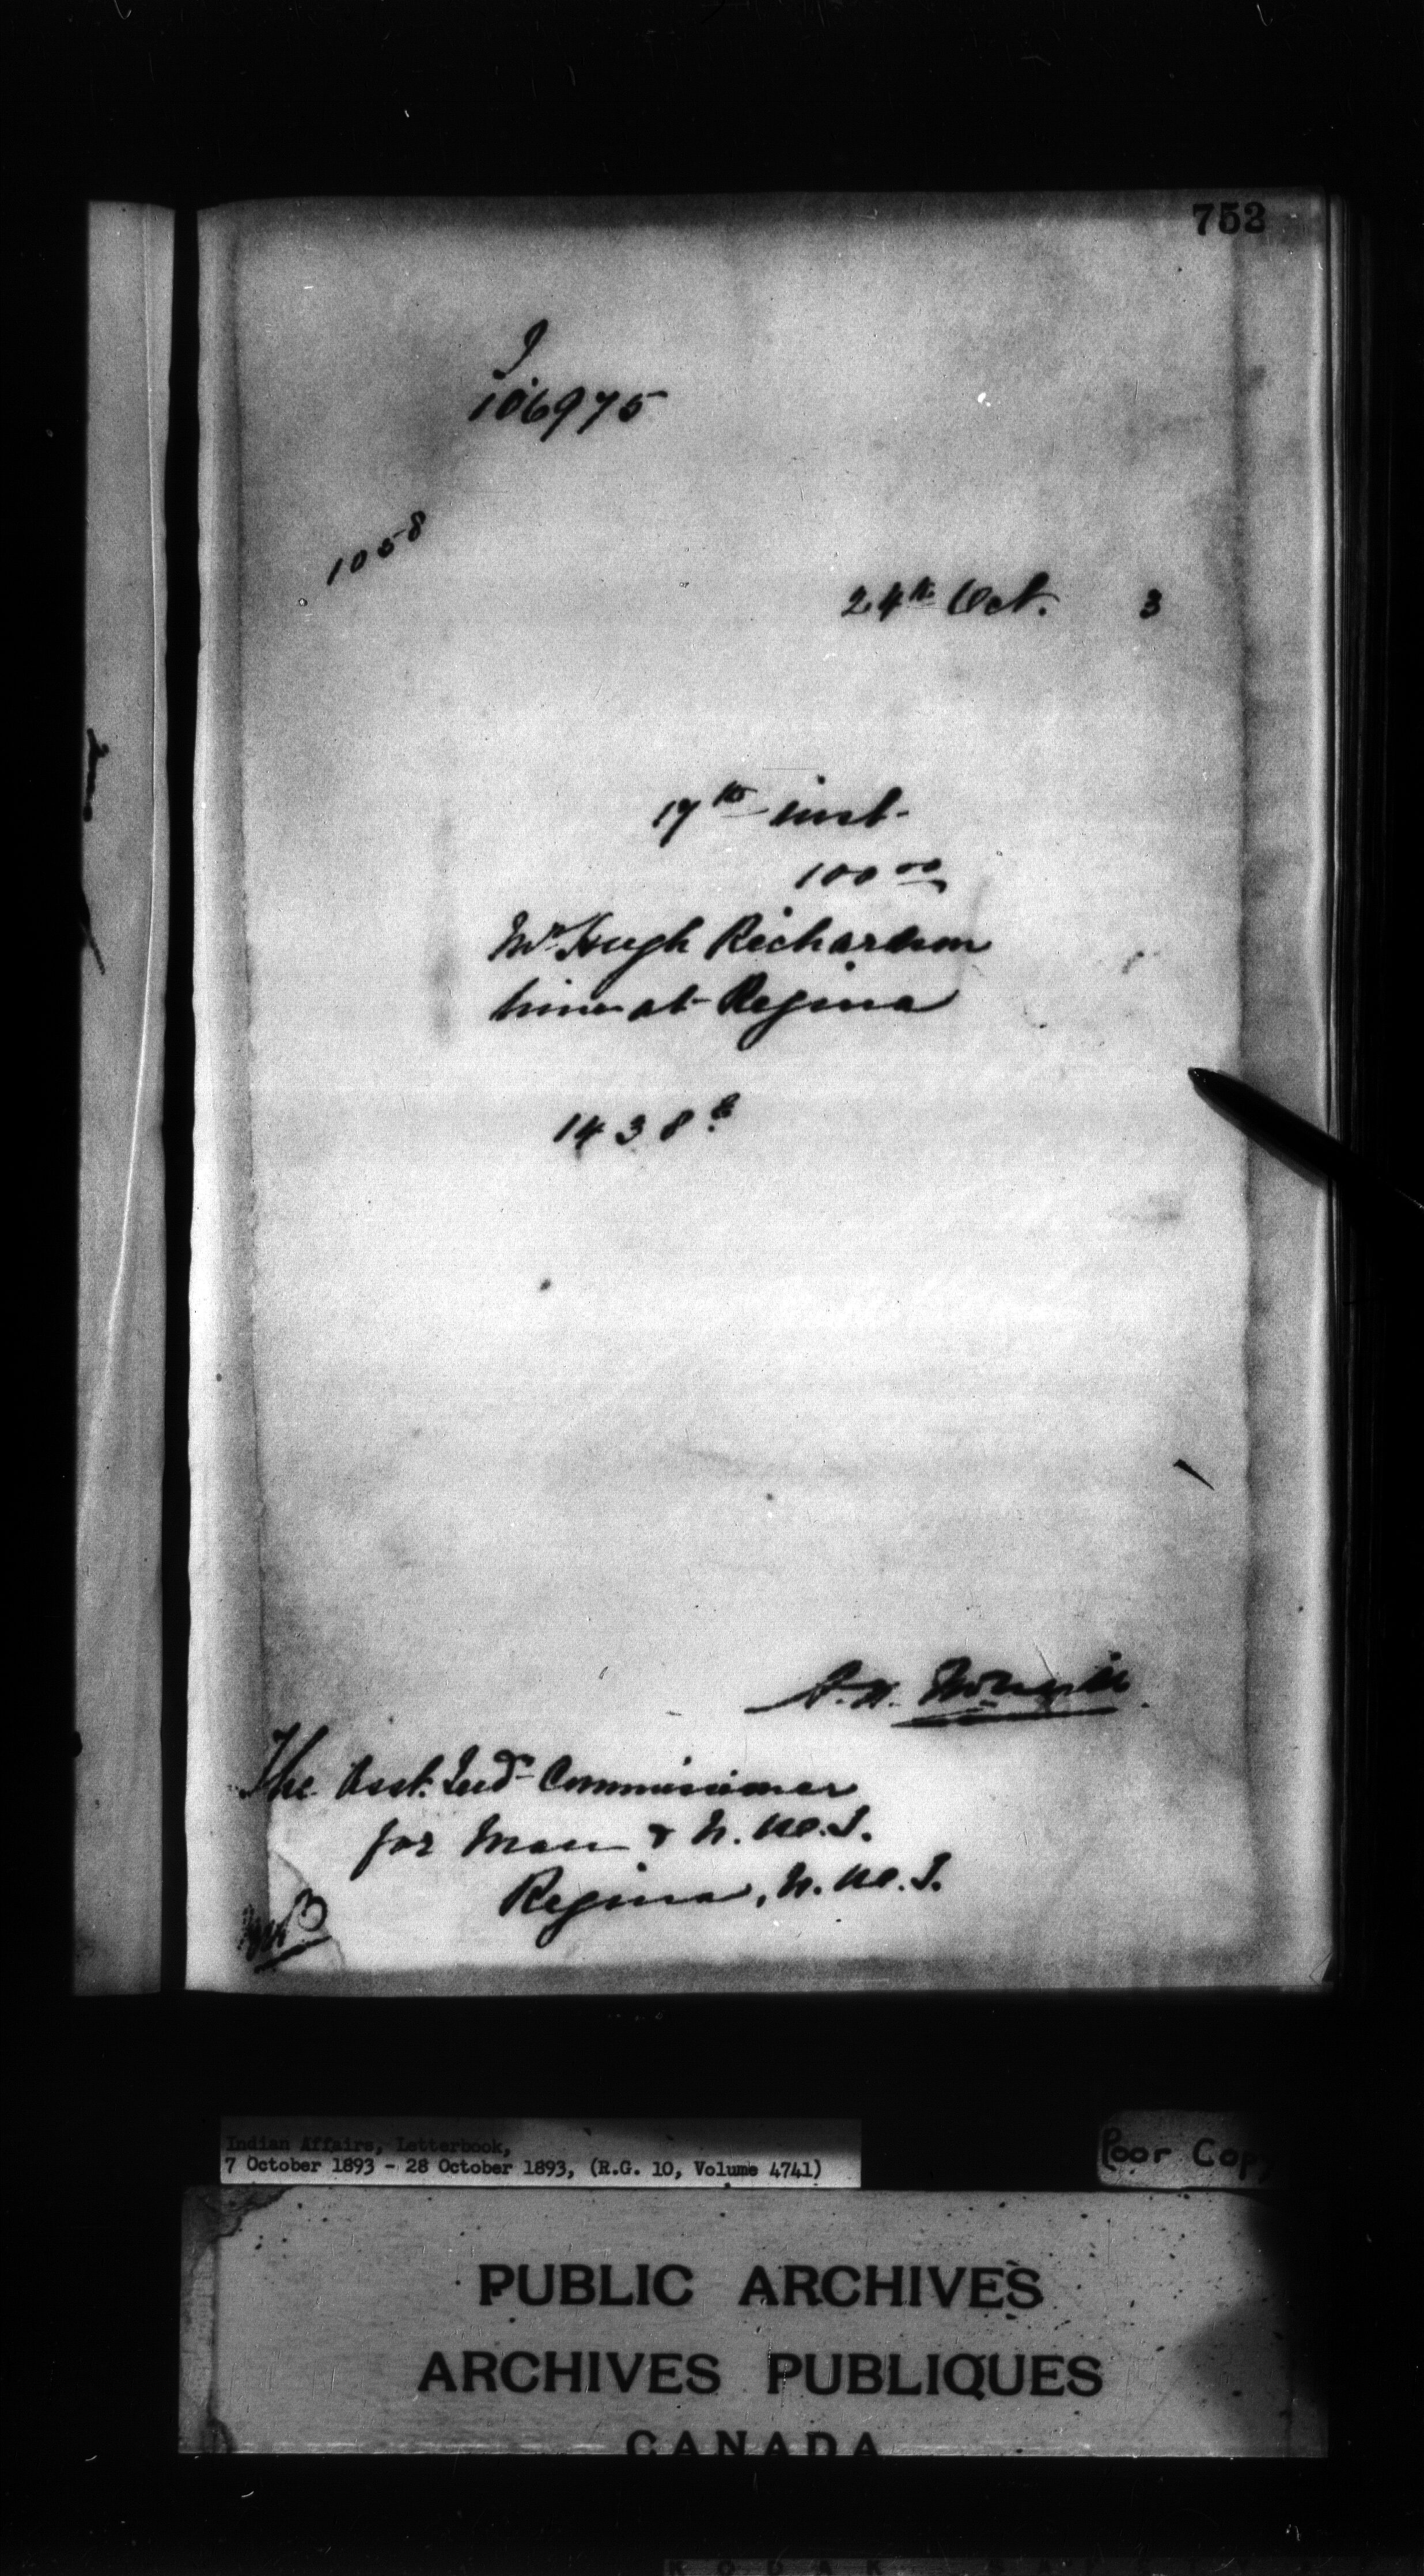 753
106975
1058
24th Oct. 3
17th inst.
100 00
Mr Hugh Richardson
him at Regina
1438
The Asst. Ind. Commissioner
for Man & N.W.T.
Regina, N.W.T.
Indian Affairs, Letterbook,
7 October 1893 - 28 October 1893, (R.G. 10, Volume 4741)
Poor Copy
PUBLIC ARCHIVES
ARCHIVES PUBLIQUES
CANADA